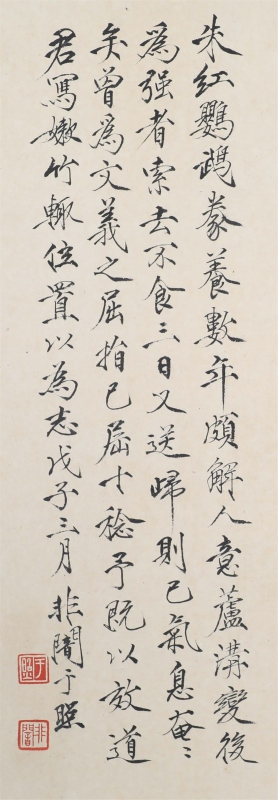 朱紅鸚鵡豢養數年頗解人意蘆溝變後
為强者索去不食三日又送歸則已氣息奄〻
矣曾為文義之屈指已届十稔予既以放道
君寫嫩竹輒位置以為志戊子三月非闇于照
于照
非闇